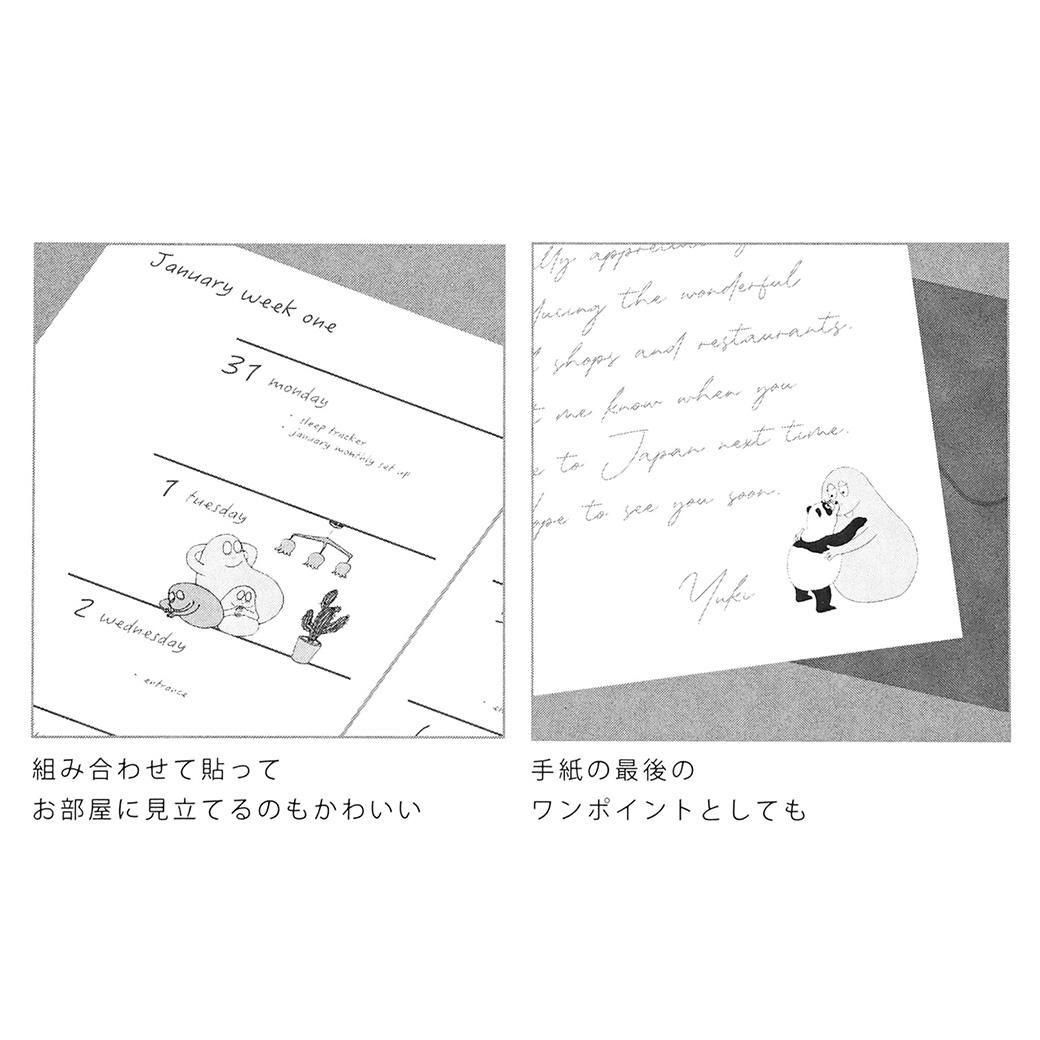 January week one
31 monday
· sleep tracker
· january monthly set up
1 tuesday
2 wednesday
· entrance
My
ducing the wonderful
shops and restaurants.
me know when you
to Japan next time.
ope to see you soon.
Yuki
組み合わせて貼って
お部屋に見立てるのもかわいい
手紙の最後の
ワンポイントとしても